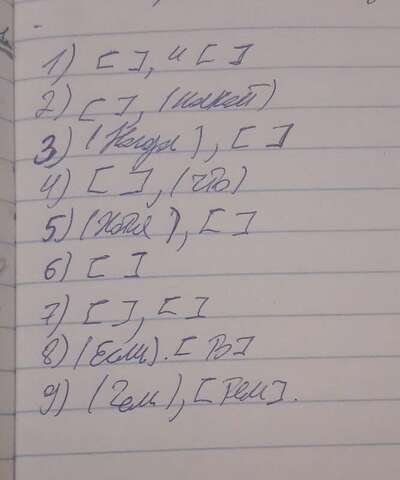 1) [ ], и [ ]
2) [ ], (какой)
3) (Когда), [ ]
4) [ ], (что)
5) (Хотя), [ ]
6) [ ]
7) [ ], [ ]
8) (Если). [ То]
9) (Чем), [тем].